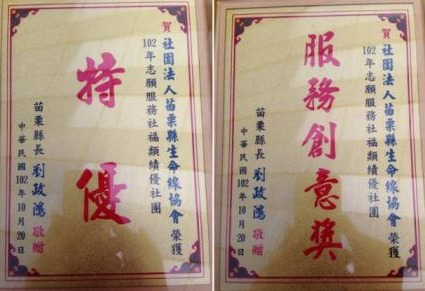 賀
社團法人苗栗縣生命線協會榮獲
102年志願服務社福類績優社團
特優
苗栗縣長 劉政鴻 敬贈
中華民國102年10月20日
賀
社團法人苗栗縣生命線協會榮獲
102年志願服務社福類績優社團
服務創意獎
苗栗縣長 劉政鴻 敬贈
中華民國102年10月20日